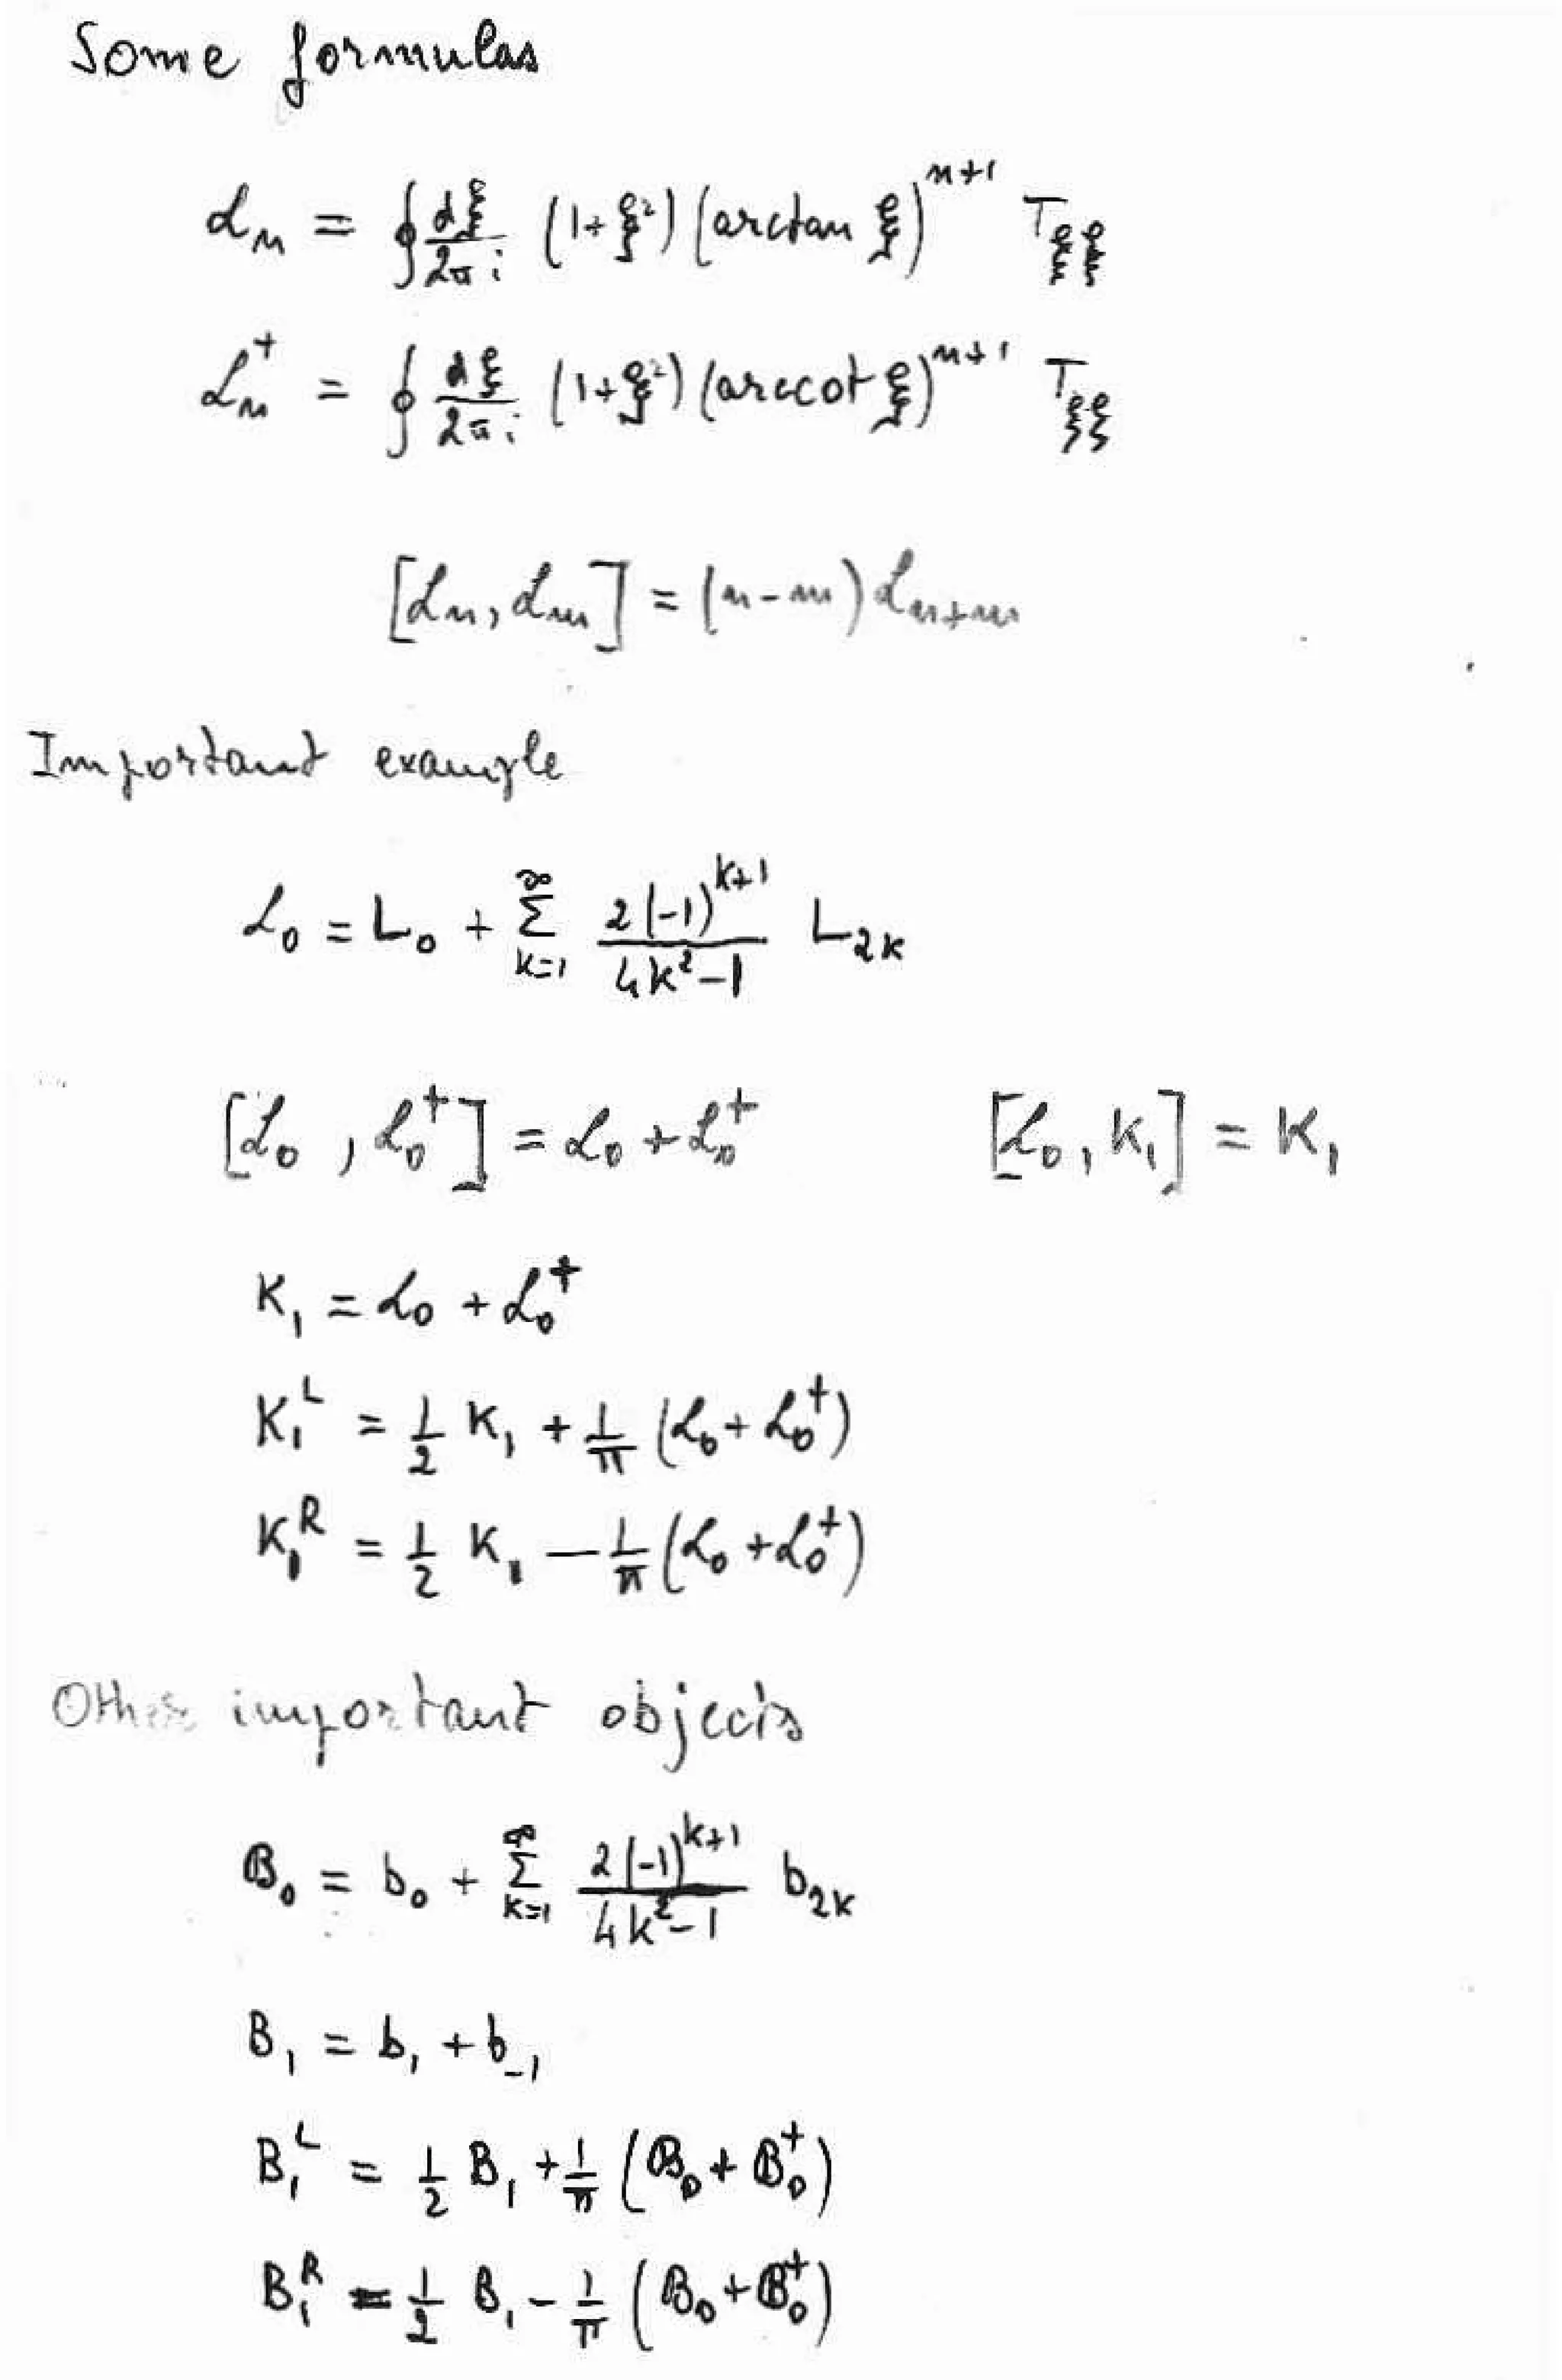 Some formulas
ℒₙ = ∮ dξ/2πi (1+ξ²) (arctan ξ)ⁿ⁺¹ T_ξξ
ℒₙ⁺ = ∮ dξ/2πi (1+ξ²) (arccot ξ)ⁿ⁺¹ T_ξξ
[ℒₙ, ℒₘ] = (n-m) ℒₙ₊ₘ
Important example
ℒ₀ = L₀ + ∑_{k=1}^{∞} 2(-1)^{k+1}/(4k²-1) L₂ₖ
[ℒ₀, ℒ₀⁺] = ℒ₀ + ℒ₀⁺ [ℒ₀, K₁] = K₁
K₁ = ℒ₀ + ℒ₀⁺
K₁ᴸ = 1/2 K₁ + 1/π (ℒ₀ + ℒ₀⁺)
K₁ᴿ = 1/2 K₁ - 1/π (ℒ₀ + ℒ₀⁺)
Other important objects
ℬ₀ = b₀ + ∑_{k=1}^{∞} 2(-1)^{k+1}/(4k²-1) b₂ₖ
B₁ = b₁ + b₋₁
B₁ᴸ = 1/2 B₁ + 1/π (ℬ₀ + ℬ₀⁺)
B₁ᴿ = 1/2 B₁ - 1/π (ℬ₀ + ℬ₀⁺)